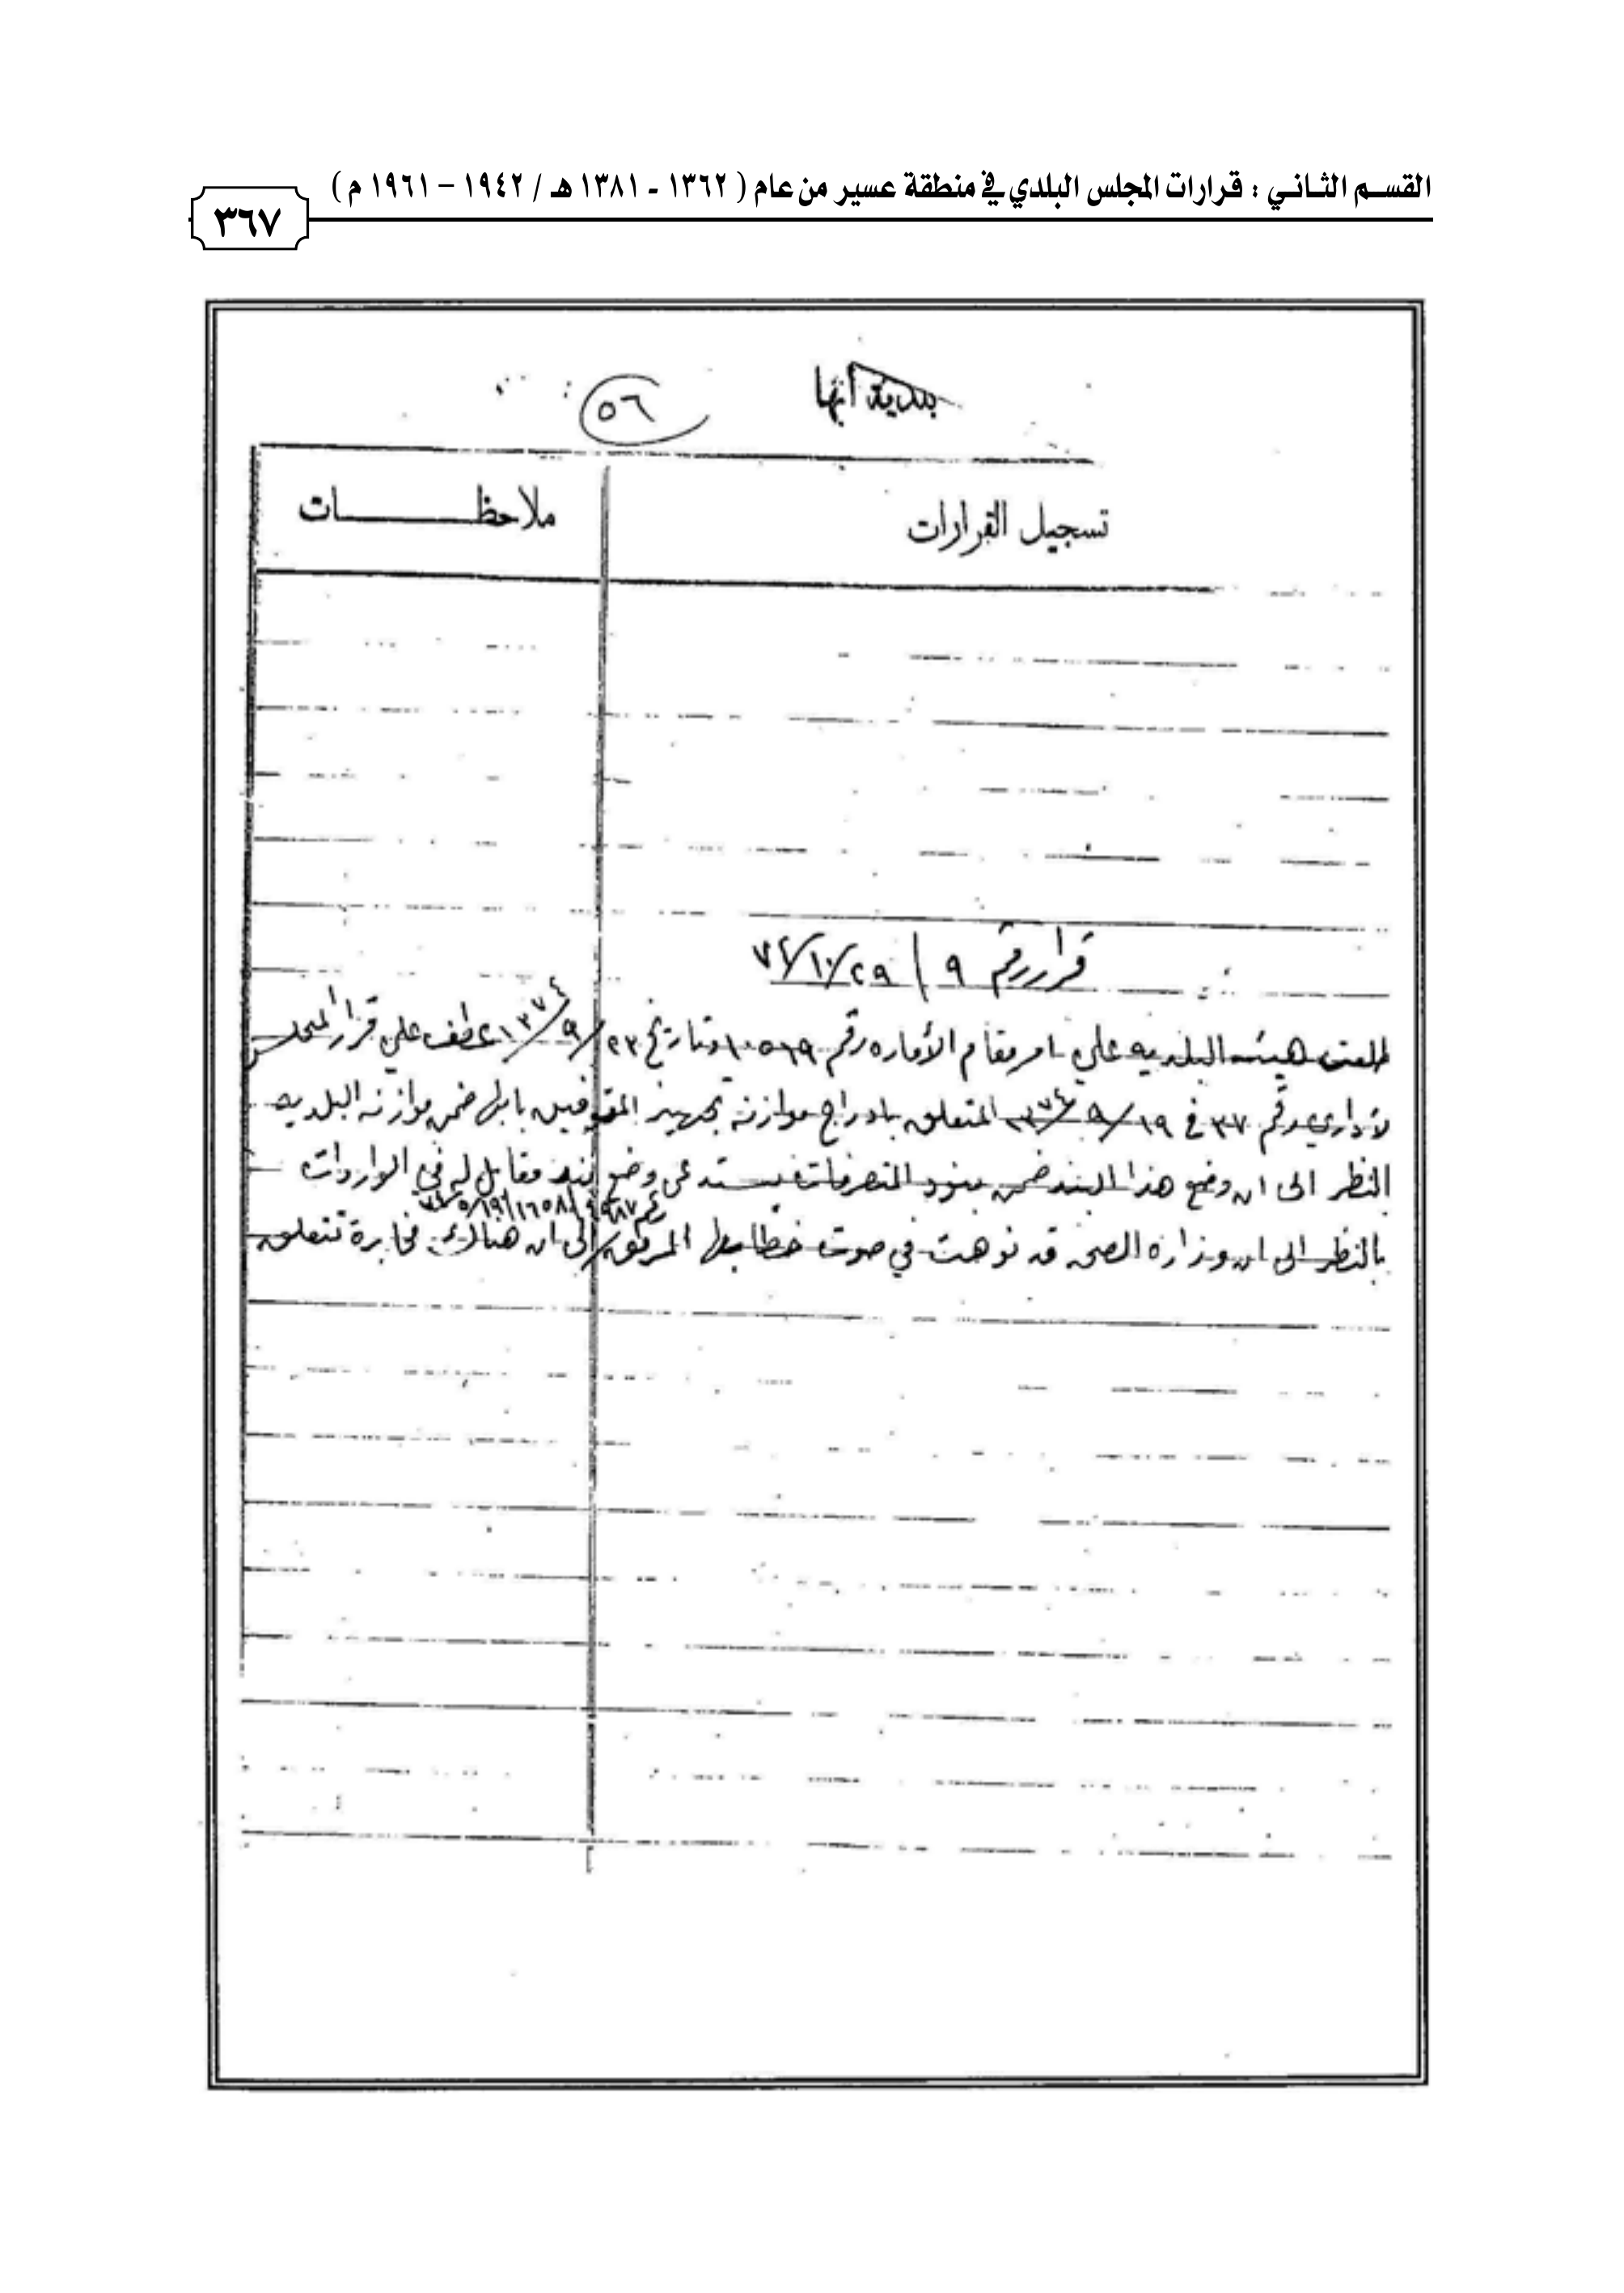 القسم الثاني : قرارات المجلس البلدي في منطقة عسير من عام ( ١٣٦٢ - ١٣٨١ هـ / ١٩٤٢ – ١٩٦١ م )
٣٦٧
بلدية أبها
٥٦
تسجيل القرارات
ملاحظات
قرار رقم ٩ / ٢٩/١٠/٧٤
طلعت هيئه البلديه علي امر مقام الأماره رقم ١٠٥١٩ وتاريخ ٢٣/٩/١٣٧٤ عطف علي قرار المجلس
لأداري رقم ٣٧ في ١٩/٩/ المتعلق بادراج موازنة تجهيز المتوفين بابها ضمن موازنه البلديه
النظر الى ان وضع هذا البند ضمن بنود المصرفات يستدعى وضع بند مقابل له في الواردات
بالنظر الى ان وزاره الصحه قد نوهت في صوت خطابها المرفق الى ان هناك مخابرة تتعلق